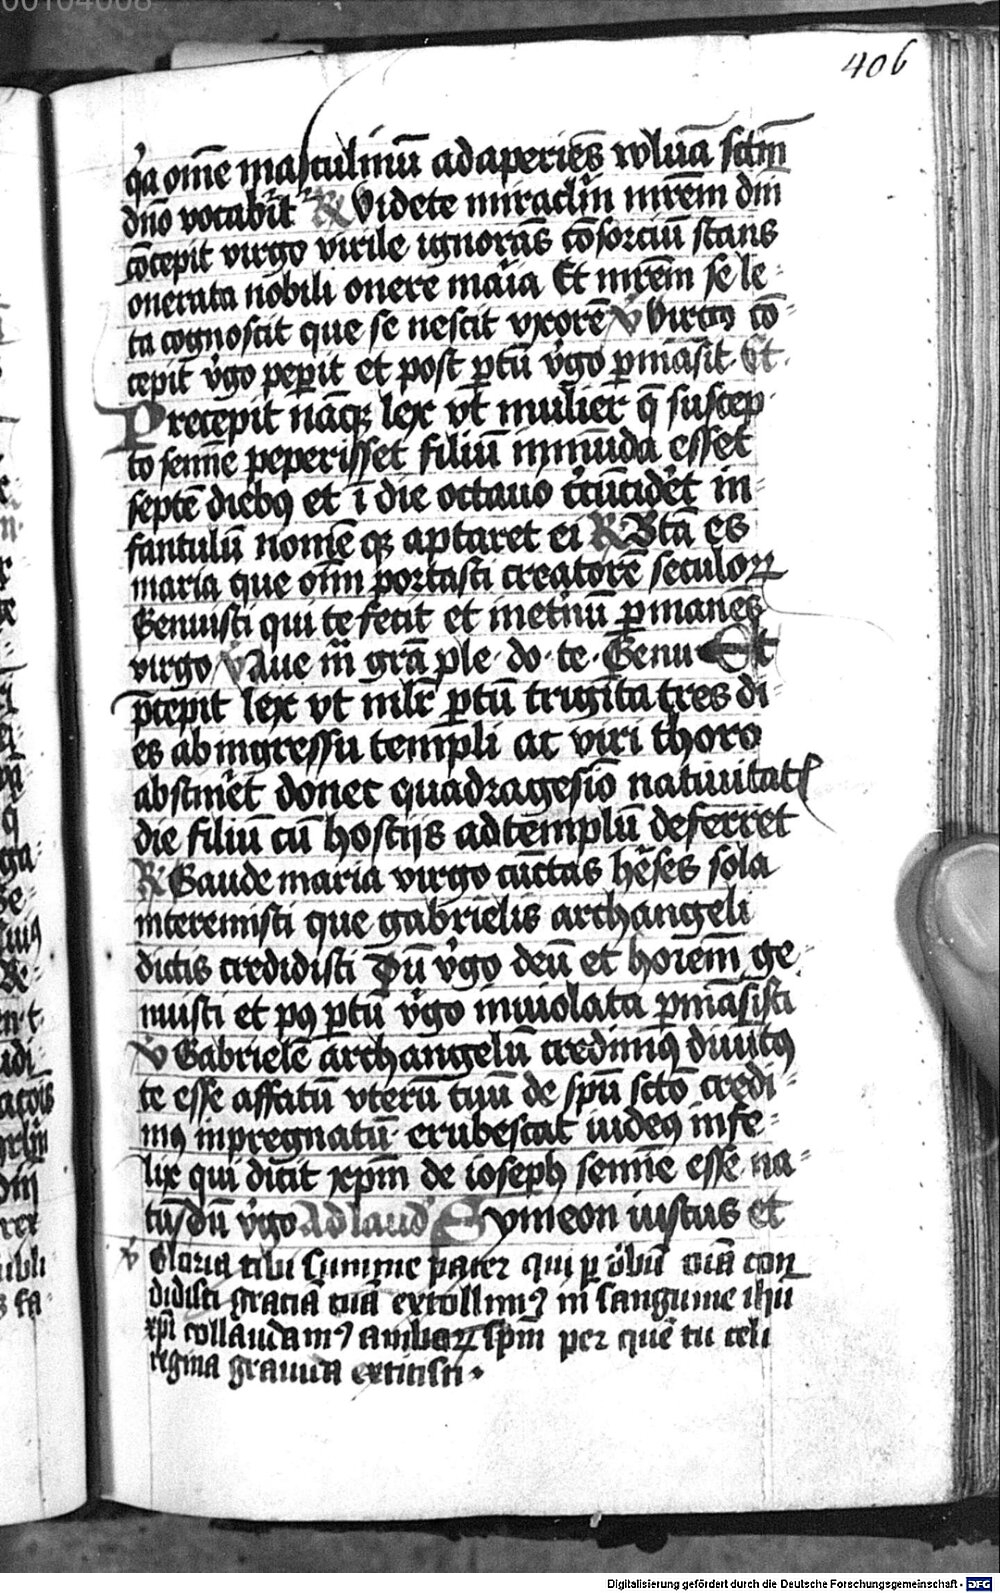 00104008
406
q̓a om̄e masculinū adaperiēs wluā sctm̄
dn̄o vocabit̉ ℟ Videte miraclm̄ mr̄em dn̄i
cōcepit virgo virile ignorās cōsorciū stans
onerata nobili onere maīa Et mr̄em se le-
ta cognoscit que se nescit vxorē ℣ Virgo cō-
cepit v̓go pep̄it et post p̄tū v̓go p̄māsit Et
Precepit nāq; lex vt mulier q̄ suscep-
to semīe peperisset filiū inmūda esset
septē diebꝫ et ī die octauo cͥcūcid̓et in-
fantulū nomēq; aptaret ei ℟ Bt̄a es
maria que dn̄m portasti creatorē seculoꝝ
Genuisti qui te fecit et inet̓nū p̄manes
virgo ℣ Aue mͣ grā ple· do· te· Genu Et
p̄cepit lex vt mlr̄ p̄tū trigīta tres di-
es ab ingressu templi ac viri thoro
abstiner̄et donec quadragesīo natiuitatꝭ
die filiū cū hostijs ad templū deferret
℟ Gaude maria virgo cūctas h̄eses sola
interemisti que gabrielis archangeli
dictis credidisti Dū v̓go deū et hoīem ge-
nuisti et pꝰ p̄tū v̓go inuiolata p̄māsisti
℣ Gabrielē archangelū credimꝰ diuitꝰ
te esse affatū vterū tuū de spū sctō credi-
mꝰ inpregnatū erubescat iudeꝰ infe-
lix qui dicit xp̄m de ioseph semīe esse na-
tū dū v̓go Ad laud̓ Symeon iustus et
℣ Gloria tibi summe pater qui p̄ v̓bū tuā con
didisti graciā tuā extollimꝰ in sanguine ihū
xp̄i collaudamꝰ amboꝝ sp̄m per quē tu celi
regina grauida extitisti·
Digitalisierung gefördert durch die Deutsche Forschungsgemeinschaft - DFG